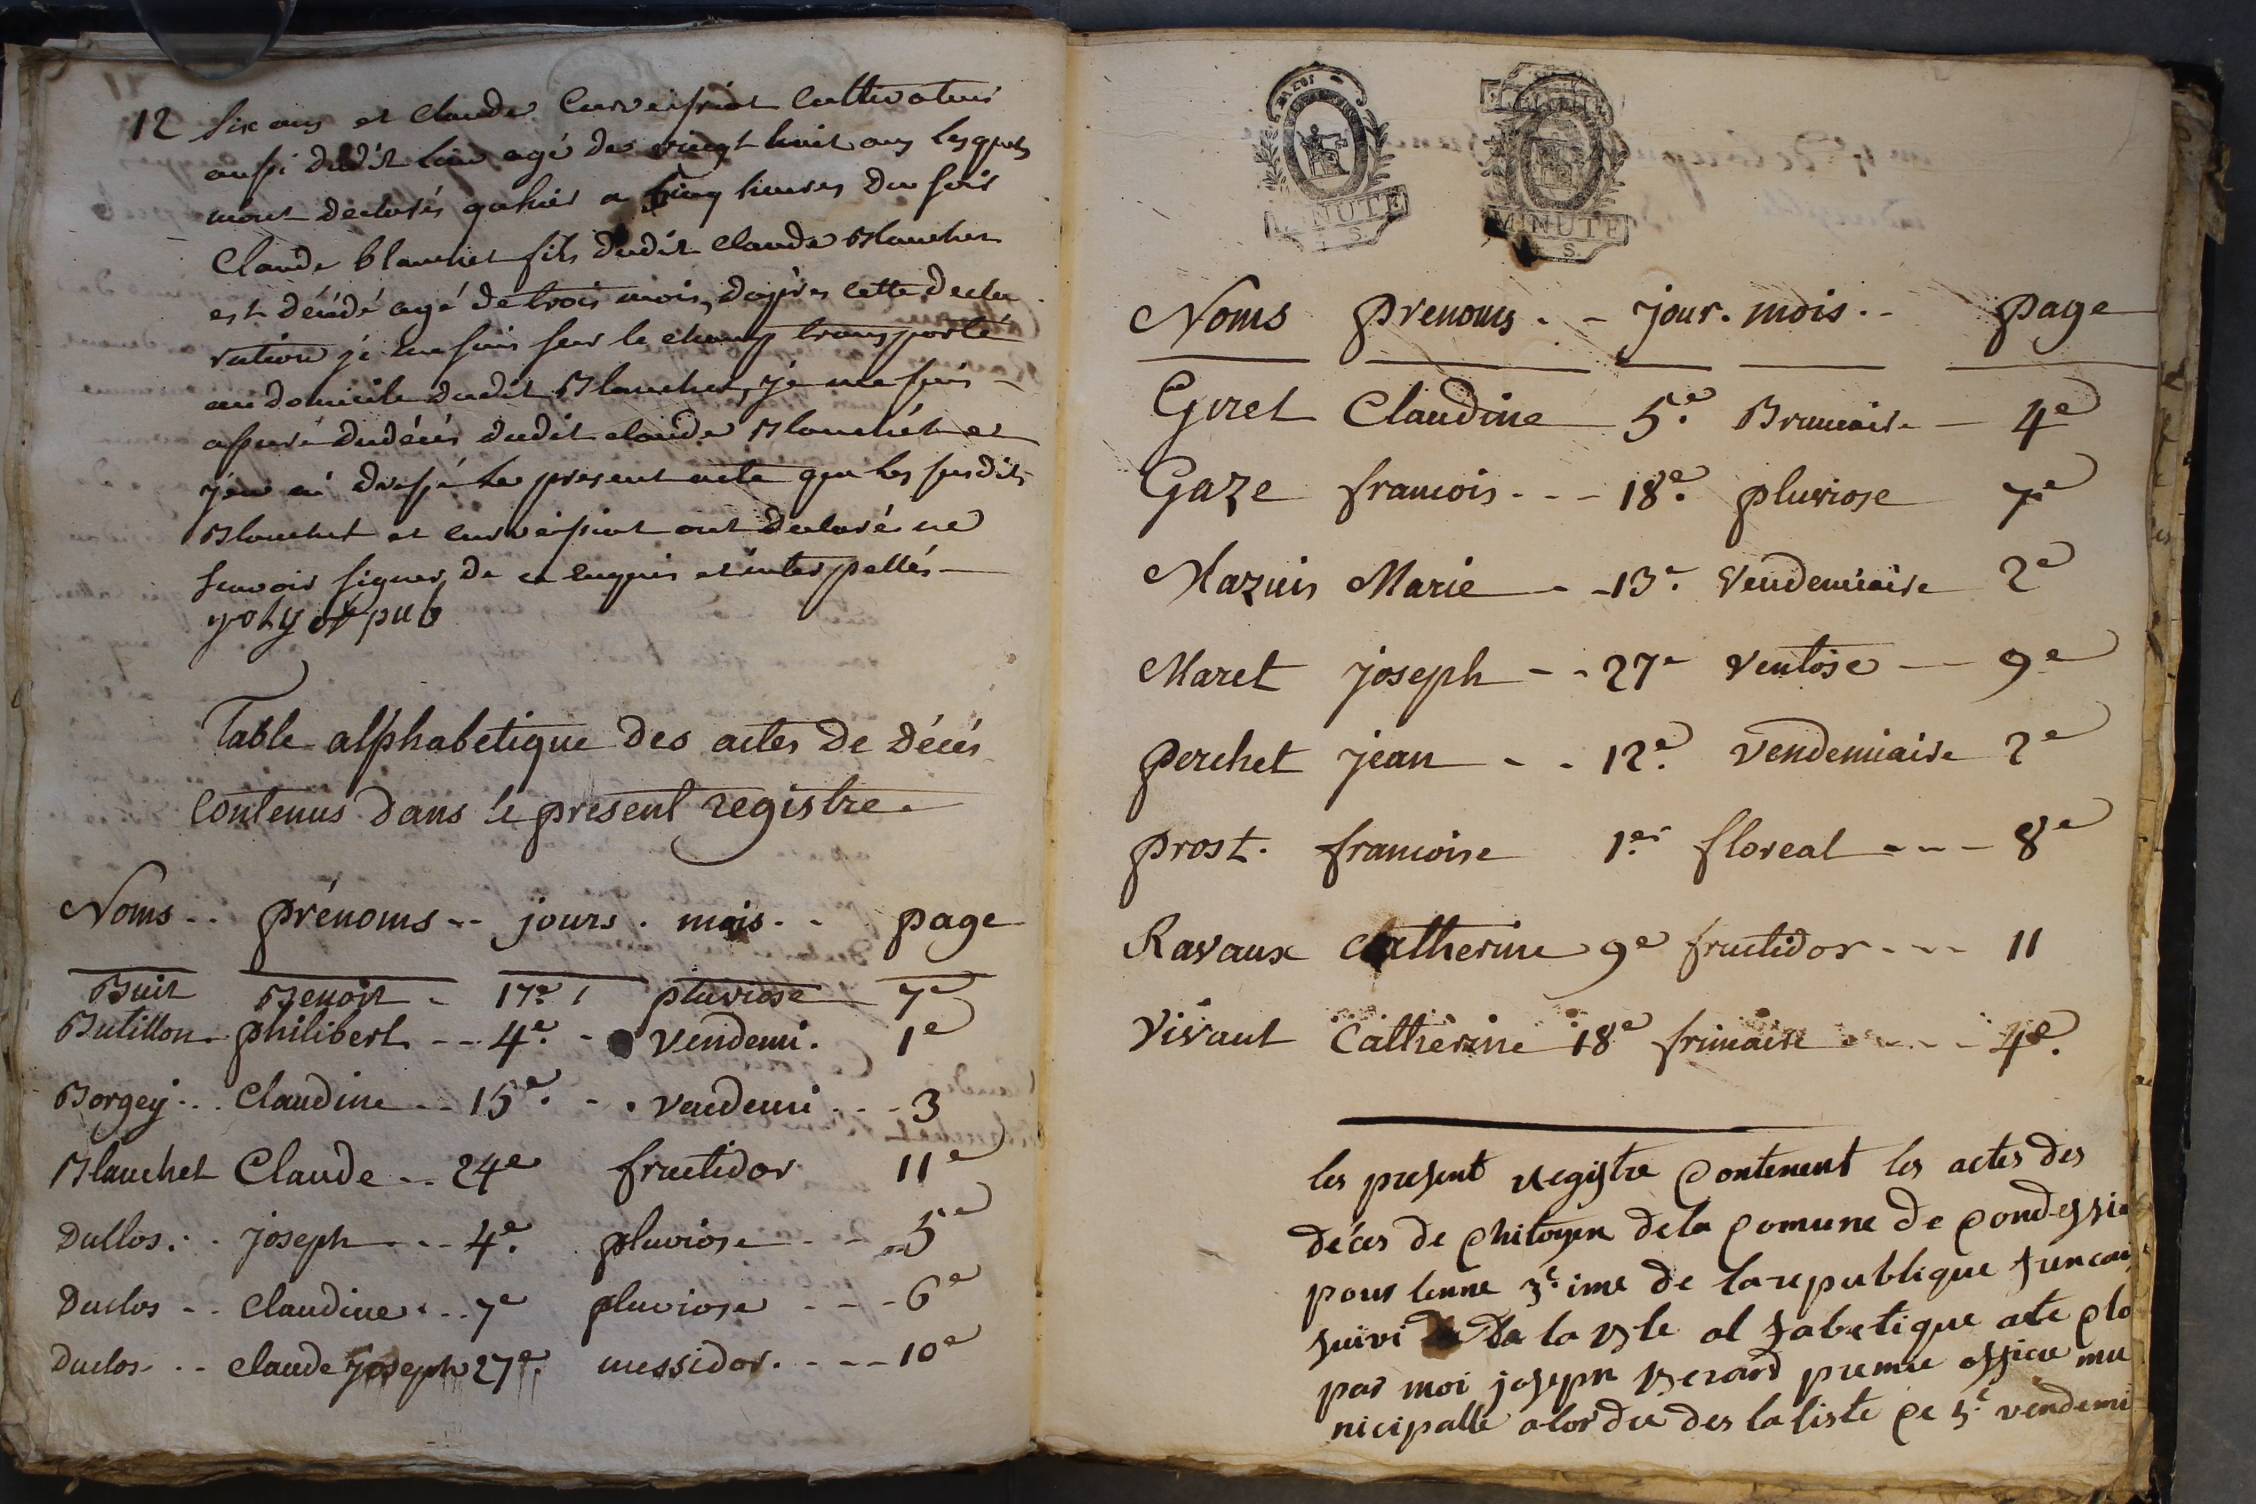 12 six ans et Claude Curveissiat Cultivateur
aussi dudit lieu agé de vingt huit ans lesquels
mont declarés qu'hier a cinq heures du soir
Claude blanchet fils dudit Claude Blanchet
est décédé agé de trois mois, daprès cette decla
ration je me suis sur le champ transporté
au domicile dudit Blanchet, je me suis
assuré du décès dudit claude Blanchet et
j'en ai dressé le present acte que les susdits
Blanchet et curveissiat ont declaré ne
scavoir signer de ce enquis et interpellés
joly of pub
Table alphabétique des actes de décés
Contenus dans le présent registre
Noms prénoms jours mois page
Buit Benoit 17e pluviose 7e
Butillon philibert 4e vendemi. 1e
Borgey Claudine 15e vendemi 3
Blanchet Claude 24e fructidor 11e
Dullos joseph 4e pluviose 5e
Duclos Claudine 7e pluviose 6e
Duclos claude joseph 27e messidor 10e
MINUTE
MINUTE
Noms prenoms jour. mois page
Goret Claudine 5e Brumaire 4e
Gaze francois 18e pluviose 7e
Mazuis Marie 13e vendemiaire 2e
Maret joseph 27e ventose 9e
perchet jean 12e vendemiaire 2e
prost. francoise 1er floreal 8e
Ravaux Catherine 9e fructidor 11
Vivant Catherine 18e frimaire 4e.
les present registre contenent les actes des
déces de chitoyen de la comune de condessia
pour lenne 3e ime de la republique
suivi de la table al fabetique
par moi joseph Berard premie officie mu
nicipalle a lordre des la liste ce 5e vendemi